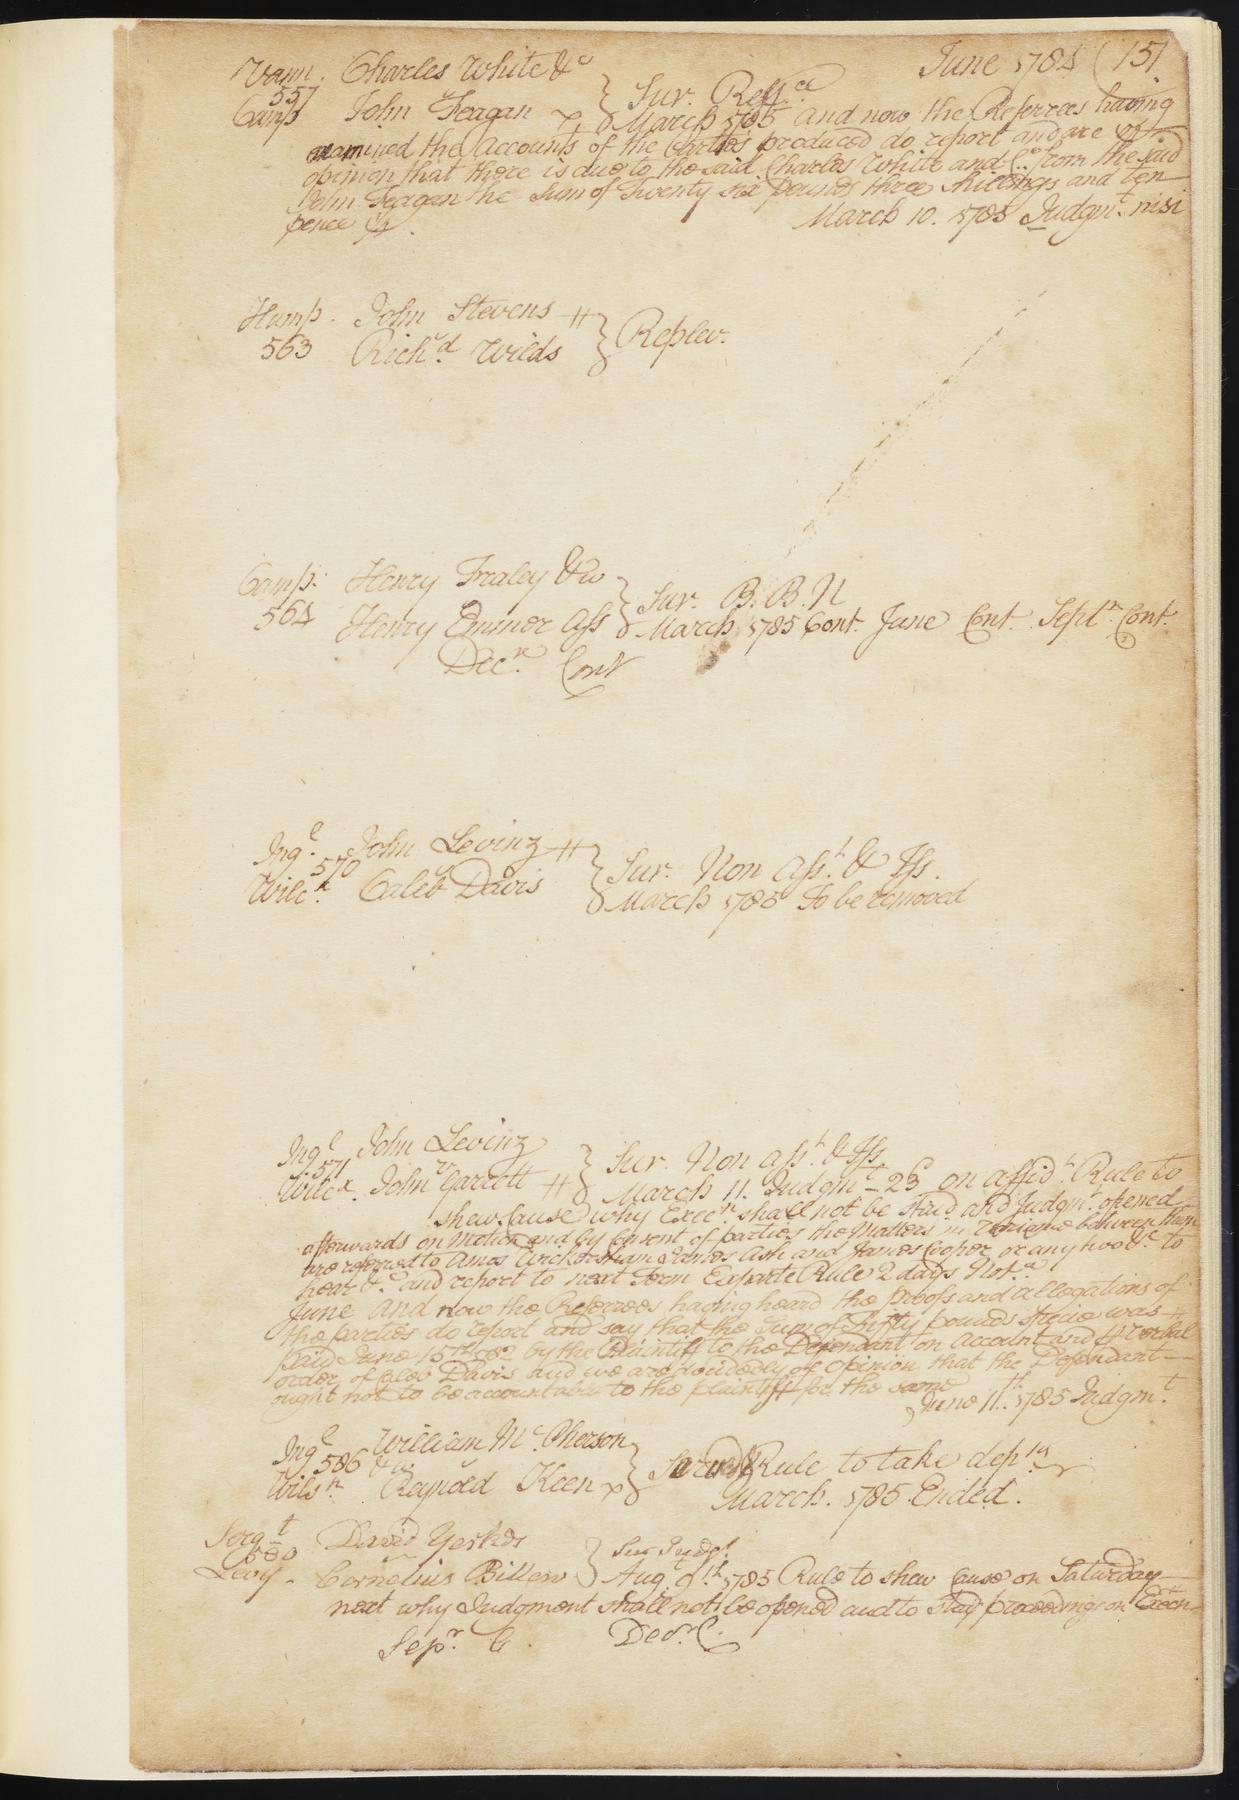 June 1784 (151
Vann. Charles White &c
557 } Sur. Reffce
Camp John Feagan x March 1785 and now the Referrees having
examined the accounts of the Parties produced do report and are of
opinion that there is due to the said Charles White and Co from the said
John Feagen the Sum of Twenty six pounds three shillings and ten
pence
March 10. 1785 Judgmt. nisi
Hamp. John Stevens ++ } Replev.
563 Richd. Wilds
Camp. Henry Fraley & w } Sur. B. B. N
564 Henry Emmor Ass March 1785 Cont. June Cont. Septr. Cont.
Decr. Cont
Ingl. John Levinz ++ } Sur. Non asst. & Iss.
570
Wilcx. Caleb Davis March 1785 To be removed
Ingl John Levinz } Sur. Non asst. & Iss
571
Wilcx. John Garrett ++ March 11. Judgmt 23d on affidt. Rule to
shew Cause why Execn. shall not be staid and Judgmt. opened
afterwards on motion and by Consent of parties the Matters in Variance between them
are referred to Amos Wickersham James Ash and James Cooper or any two &c to
hear &c. and report to next Term Exparte Rule 2 days Not.
June and now the Referrees having heard the proofs and allegations of
the parties do report and say that the Sum of Fifty pounds specie was
paid June 15th 1782 by the Plaintiff to the Defendant on account and verbal
order of Caleb Davis and we are decidedly of opinion that the Defendant
ought not to be accountable to the plaintiff for the same
June 11th. 1785 Judgmt.
Ingl William McPherson
586 } Rule to take depns
Wilsn. Raynold Keen x March. 1785 Ended.
Sergt David Yerkes } Sur Judgt.
580
Levy. Cornelius Billew Aug. 9th. 1785 Rule to shew Cause on Saturday
next why Judgment shall not be opened and to stay proceedings on Execn
Sepr. C. Decr. C.